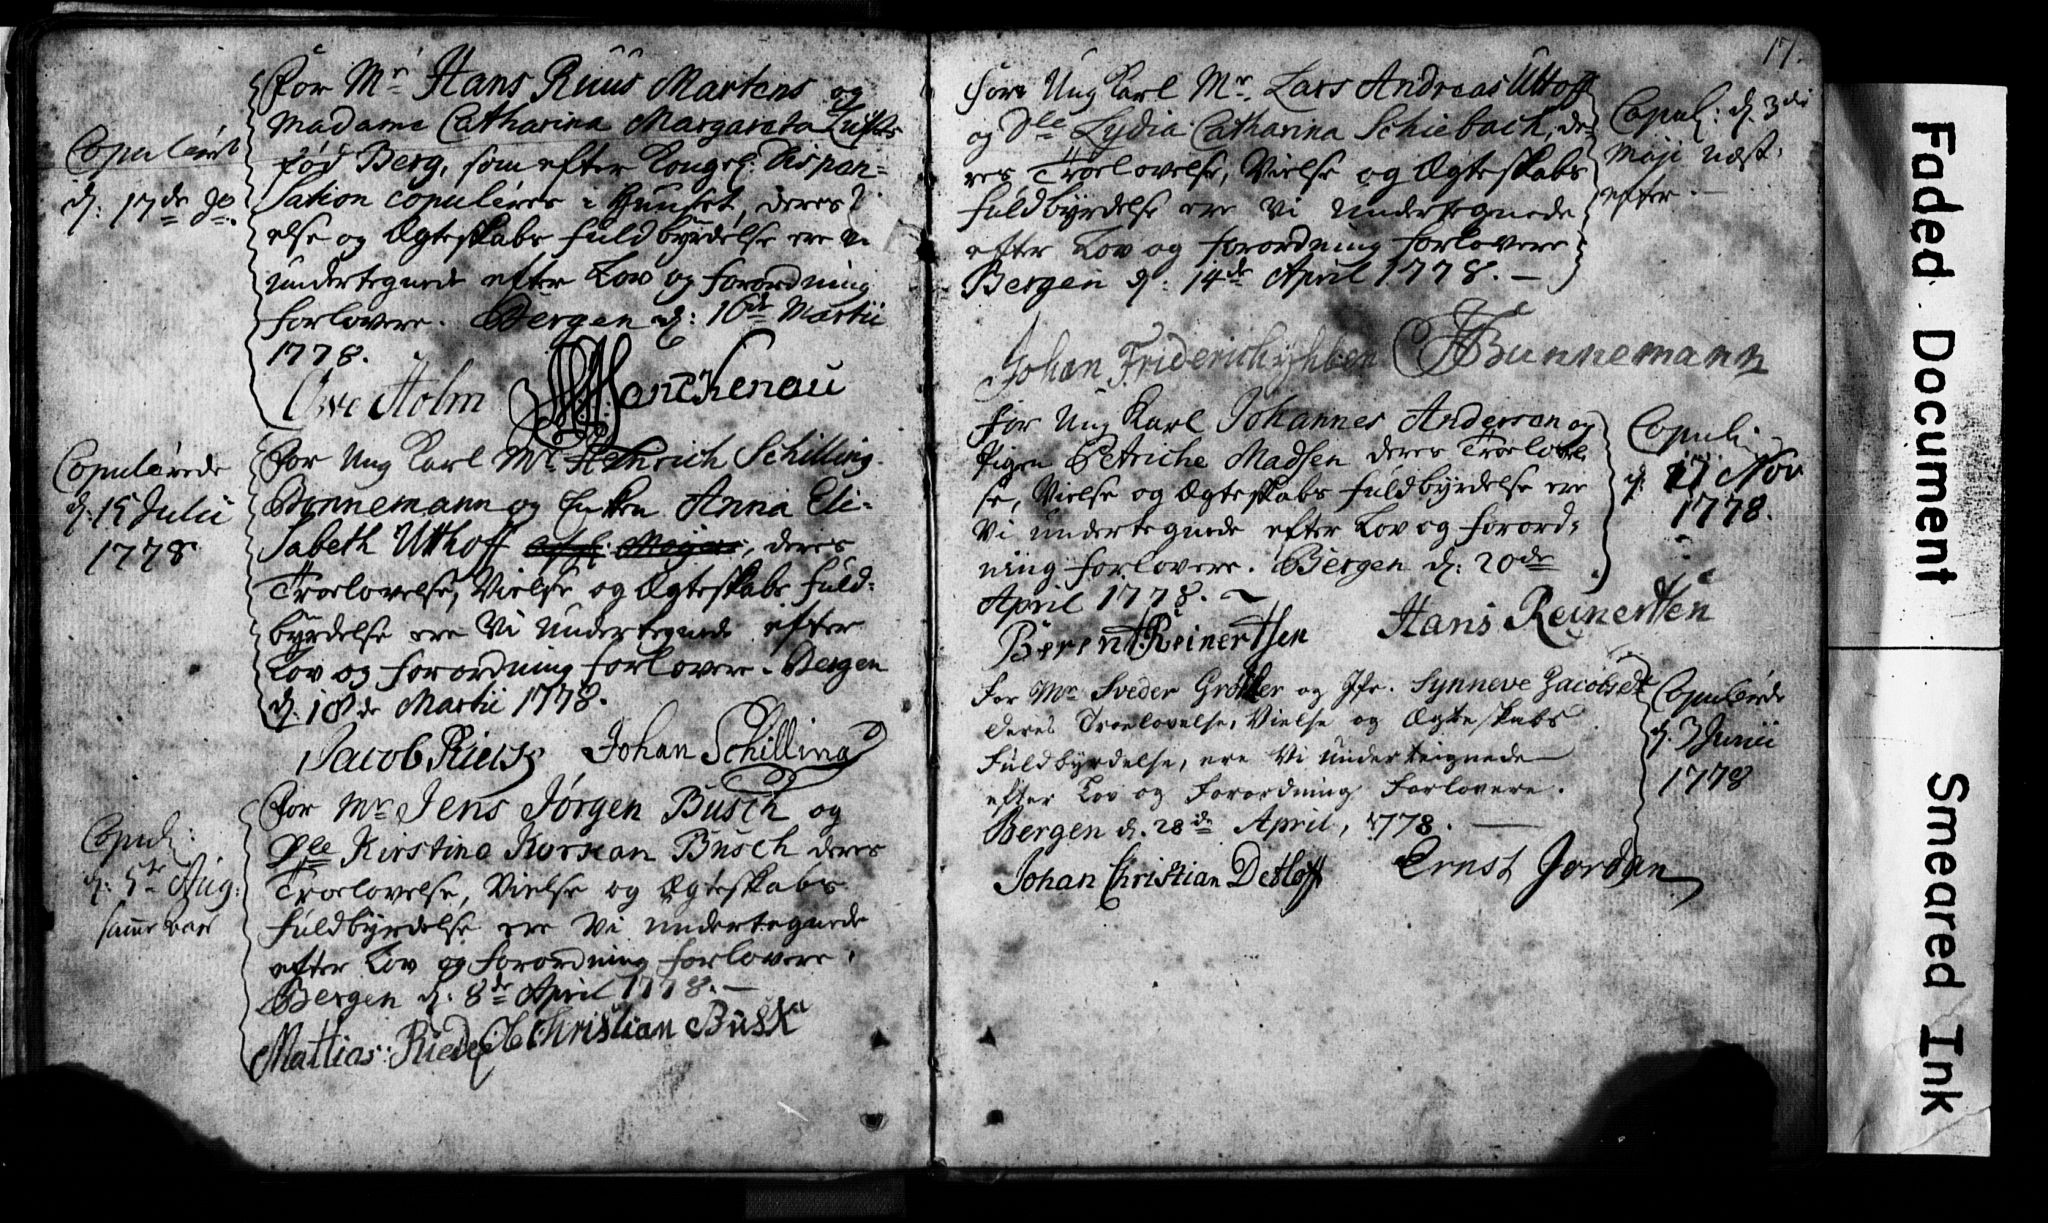 For Mr Hans Ruus Martens og
Madame Catharina Margareta
Copulérit
fød Berg, som efter Kongel: Dispen=
d: 17de do.
sation copuléres i Huuset, deres
else og Ægteskabs fuldbyrdelse ere vi
undertegnede efter Lov og forordning
forlovere. Bergen d: 16de Martii
1778.
Owe Holm
For Ung Karl Mr Henrich Schilling
Copulérede
d: 15 Julii
1778
Bünnemann og Enken Anna Eli=
sabeth Utthoff, deres
Troelovelse, Vielse og Ægteskabs fuld=
byrdelse ere Vi undertegnede efter
Lov og forordning forlovere. Bergen
d. 18de Martii 1778.
Johan Schilling
For Mr Jens Jørgen Busch og
Copul:
d: 5te Aug:
Dlle Kirstina Busch deres
Troelovelse, Vielse og Ægteskabs
fuldbyrdelse ere Vi undertegnede
efter Lov og forordning forlovere,
Bergen d: 8de April 1778. —
Christian Busk
17.
For Ung Karl Mr. Lars Andreas Uttoff
og Dlle Lydia Catharina Schiebach, de=
res Troelovelse, Vielse og Ægteskabs
fuldbyrdelse ere Vi undertegnede
efter Lov og forordning forlovere
Bergen d: 14de April 1778. —
Copul: d. 3die
Maji næst
efter —
Johan Friderich Bunnemann
For Ung Karl Johannes Andersen og
Pigen Petriche Madsen deres Troelovel
se, Vielse og Ægteskabs fuldbyrdelse ere
Vi undertegnede efter Lov og forord=
ning forlovere. Bergen d: 20de
April 1778. ~
Copul:
d: 17 Nov
1778.
Berent Reinertsen Hans Reinertsen
For Mr Sveder Grøtter og Jfr. Synneve Jacobsen
deres Troelovelse, Vielse og Ægteskabs
fuldbyrdelse, ere Vi underteignede
efter Lov og Forordning Forlovere.
Bergen d. 28de April, 1778. —
Copulérede
d. 3 Junii
1778
Johan Christian Detloff Ernst Jordan
Faded Document
Smeared Ink